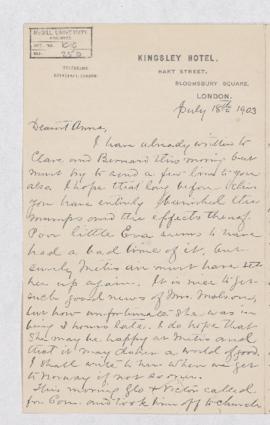 McGILL UNIVERSITY
ARCHIVES
ACC. NO.
REF.
KINGSLEY HOTEL,
HART STREET,
BLOOMSBURY SQUARE,
LONDON.
July 18th 1903
Dearest Anna,
I have already written to
Clare and Bernard this morning but
must try to send a few lines to you
also. I hope that long before this
you have entirely banished the
mumps and the effects thereof.
Poor little Eva seems to have
had a bad time of it, but
surely Metis air must have set
her up again. It is nice to get
such good news of Mrs. Molson,
but how unfortunate she was in
being 3 hours late. I do hope that
she may be happy at Metis and
that it may do her a world of good.
I shall write to her when we get
to Norway if not sooner.
This morning Glo & Victor called
for Con. and took him off to church